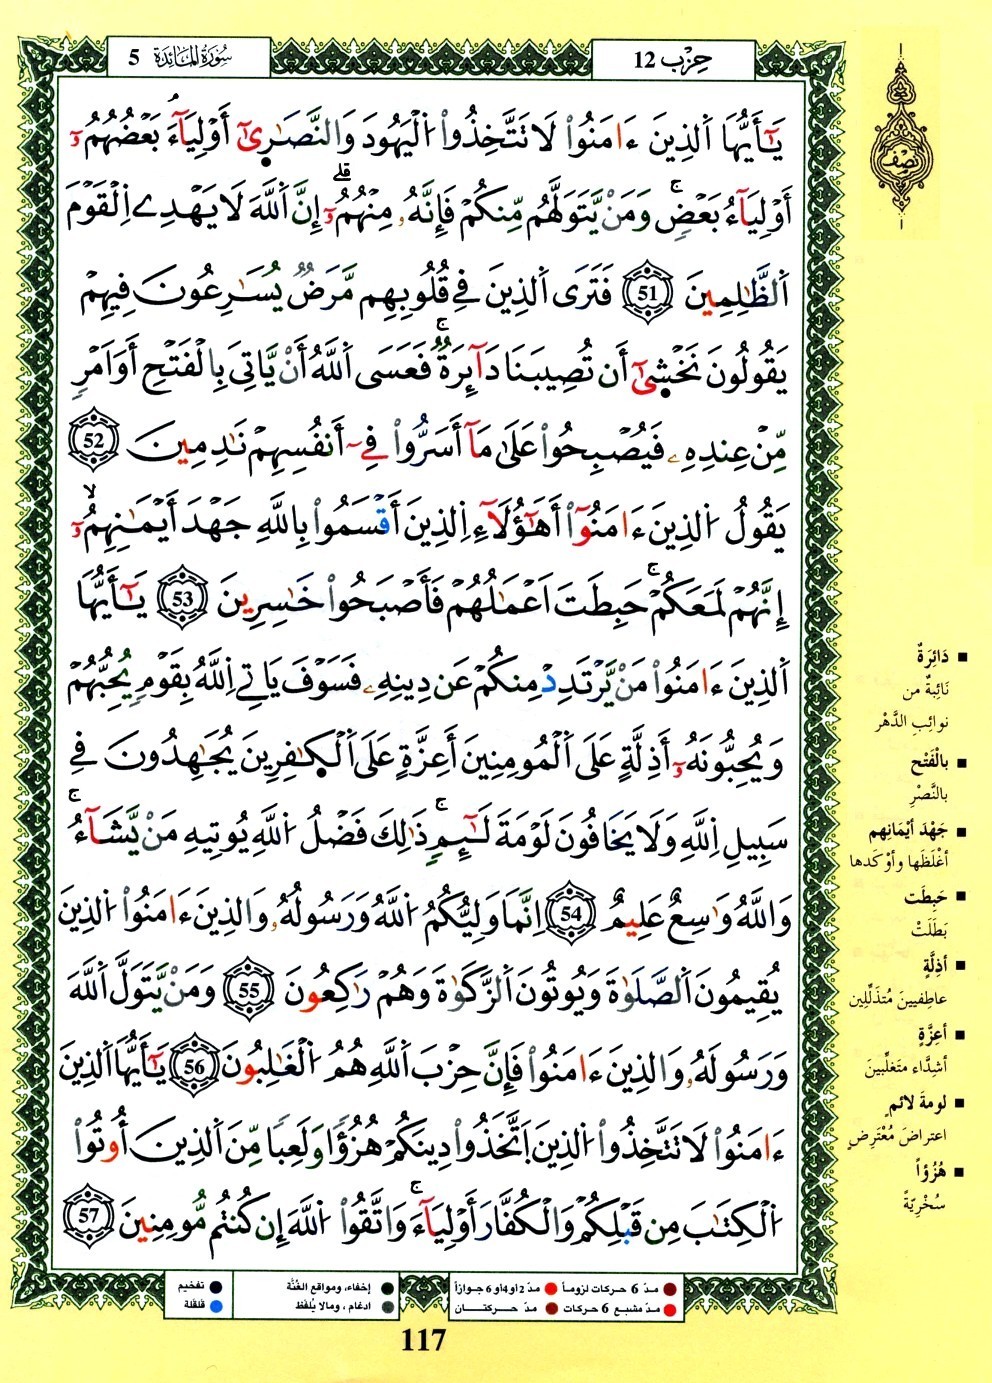 حِزْب 12
سُورَةُ المَائدَة 5
نِصْف
يَٰٓأَيُّهَا اَ۬لذِينَ ءَامَنُواْ لَا تَتَّخِذُواْ اُ۬ليَهُودَ وَالنَّصَٰر۪ىٰٓ أَوْلِيَآءَۖ بَعْضُهُمُۥٓ
أَوْلِيَآءُ بَعْضٖۚ وَمَنْ يَّتَوَلَّهُم مِّنكُمْ فَإِنَّهُۥ مِنْهُمُۥٓۖ إِنَّ اَ۬للَّهَ لَا يَهْدِے اِ۬لْقَوْمَ
اَ۬لظَّٰلِمِينَ 51 فَتَرَى اَ۬لذِينَ فِے قُلُوبِهِم مَّرَضٞ يُسَٰرِعُونَ فِيهِمْ
يَقُولُونَ نَخْش۪ىٰٓ أَن تُصِيبَنَا دَآئِرَةٞۚ فَعَسَى اَ۬للَّهُ أَنْ يَّاتِيَ بِالْفَتْحِ أَوَ اَمْرٖ
مِّنْ عِندِهِۦ فَيُصْبِحُواْ عَلَىٰ مَآ أَسَرُّواْ فِےٓ أَنفُسِهِمْ نَٰدِمِينَ 52
يَقُولُ اُ۬لذِينَ ءَامَنُوٓاْ أَهَٰٓؤُلَآءِ اِ۬لذِينَ أَقْسَمُواْ بِاللَّهِ جَهْدَ أَيْمَٰنِهِمُۥٓۙ
إِنَّهُمْ لَمَعَكُمْۚ حَبِطَتَ اَعْمَٰلُهُمْ فَأَصْبَحُواْ خَٰسِرِينَ 53 يَٰٓأَيُّهَا
اَ۬لذِينَ ءَامَنُواْ مَنْ يَّرْتَدِدْ مِنكُمْ عَن دِينِهِۦ فَسَوْفَ يَاتِے اِ۬للَّهُ بِقَوْمٖ يُحِبُّهُمْ
وَيُحِبُّونَهُۥٓ أَذِلَّةٍ عَلَى اَ۬لْمُومِنِينَ أَعِزَّةٍ عَلَى اَ۬لْكٰ۪فِرِينَ يُجَٰهِدُونَ فِے
سَبِيلِ اِ۬للَّهِ وَلَا يَخَافُونَ لَوْمَةَ لَآئِمٖۚ ذَٰلِكَ فَضْلُ اُ۬للَّهِ يُوتِيهِ مَنْ يَّشَآءُۚ
وَاللَّهُ وَٰسِعٌ عَلِيمٌ 54 اِنَّمَا وَلِيُّكُمُ اُ۬للَّهُ وَرَسُولُهُۥ وَالذِينَ ءَامَنُواْ اُ۬لذِينَ
يُقِيمُونَ اَ۬لصَّلَوٰةَ وَيُوتُونَ اَ۬لزَّكَوٰةَ وَهُمْ رَٰكِعُونَ 55 وَمَنْ يَّتَوَلَّ اَ۬للَّهَ
وَرَسُولَهُۥ وَالذِينَ ءَامَنُواْ فَإِنَّ حِزْبَ اَ۬للَّهِ هُمُ اُ۬لْغَٰلِبُونَ 56 يَٰٓأَيُّهَا اَ۬لذِينَ
ءَامَنُواْ لَا تَتَّخِذُواْ اُ۬لذِينَ اَ۪تَّخَذُواْ دِينَكُمْ هُزُؤاٗ وَلَعِباٗ مِّنَ اَ۬لذِينَ أُوتُواْ
اُ۬لْكِتَٰبَ مِن قَبْلِكُمْ وَالْكُفَّارَ أَوْلِيَآءَۚ وَاتَّقُواْ اُ۬للَّهَ إِن كُنتُم مُّومِنِينَ 57
دَائِرَةٌ
نَائِبةٌ من
نوائِبِ الدَّهْر
بالْفَتْح
بالنَّصْرِ
جَهْدَ أيْمَانِهِم
أغْلَظَها وأوْكَدها
حَبِطَت
بَطَلَتْ
أذِلَّةٍ
عاطِفيينَ مُتذَلِّلين
أعِزَّةٍ
أشِدَّاء متَغلِّبينَ
لومةَ لائمٍ
اعتراضَ مُعْتَرِضٍ
هُزُؤاً
سُخْرِيّةً
مدّ 6 حركات لزوماً
مدّ 2 أو 4 أو 6 جوازاً
إخفاء، ومواقع الغُنَّة
تفخيم
مدّ مشبع 6 حركات
مدّ حركتان
ادغام، وما لا يُلفَظ
قلقلة
117